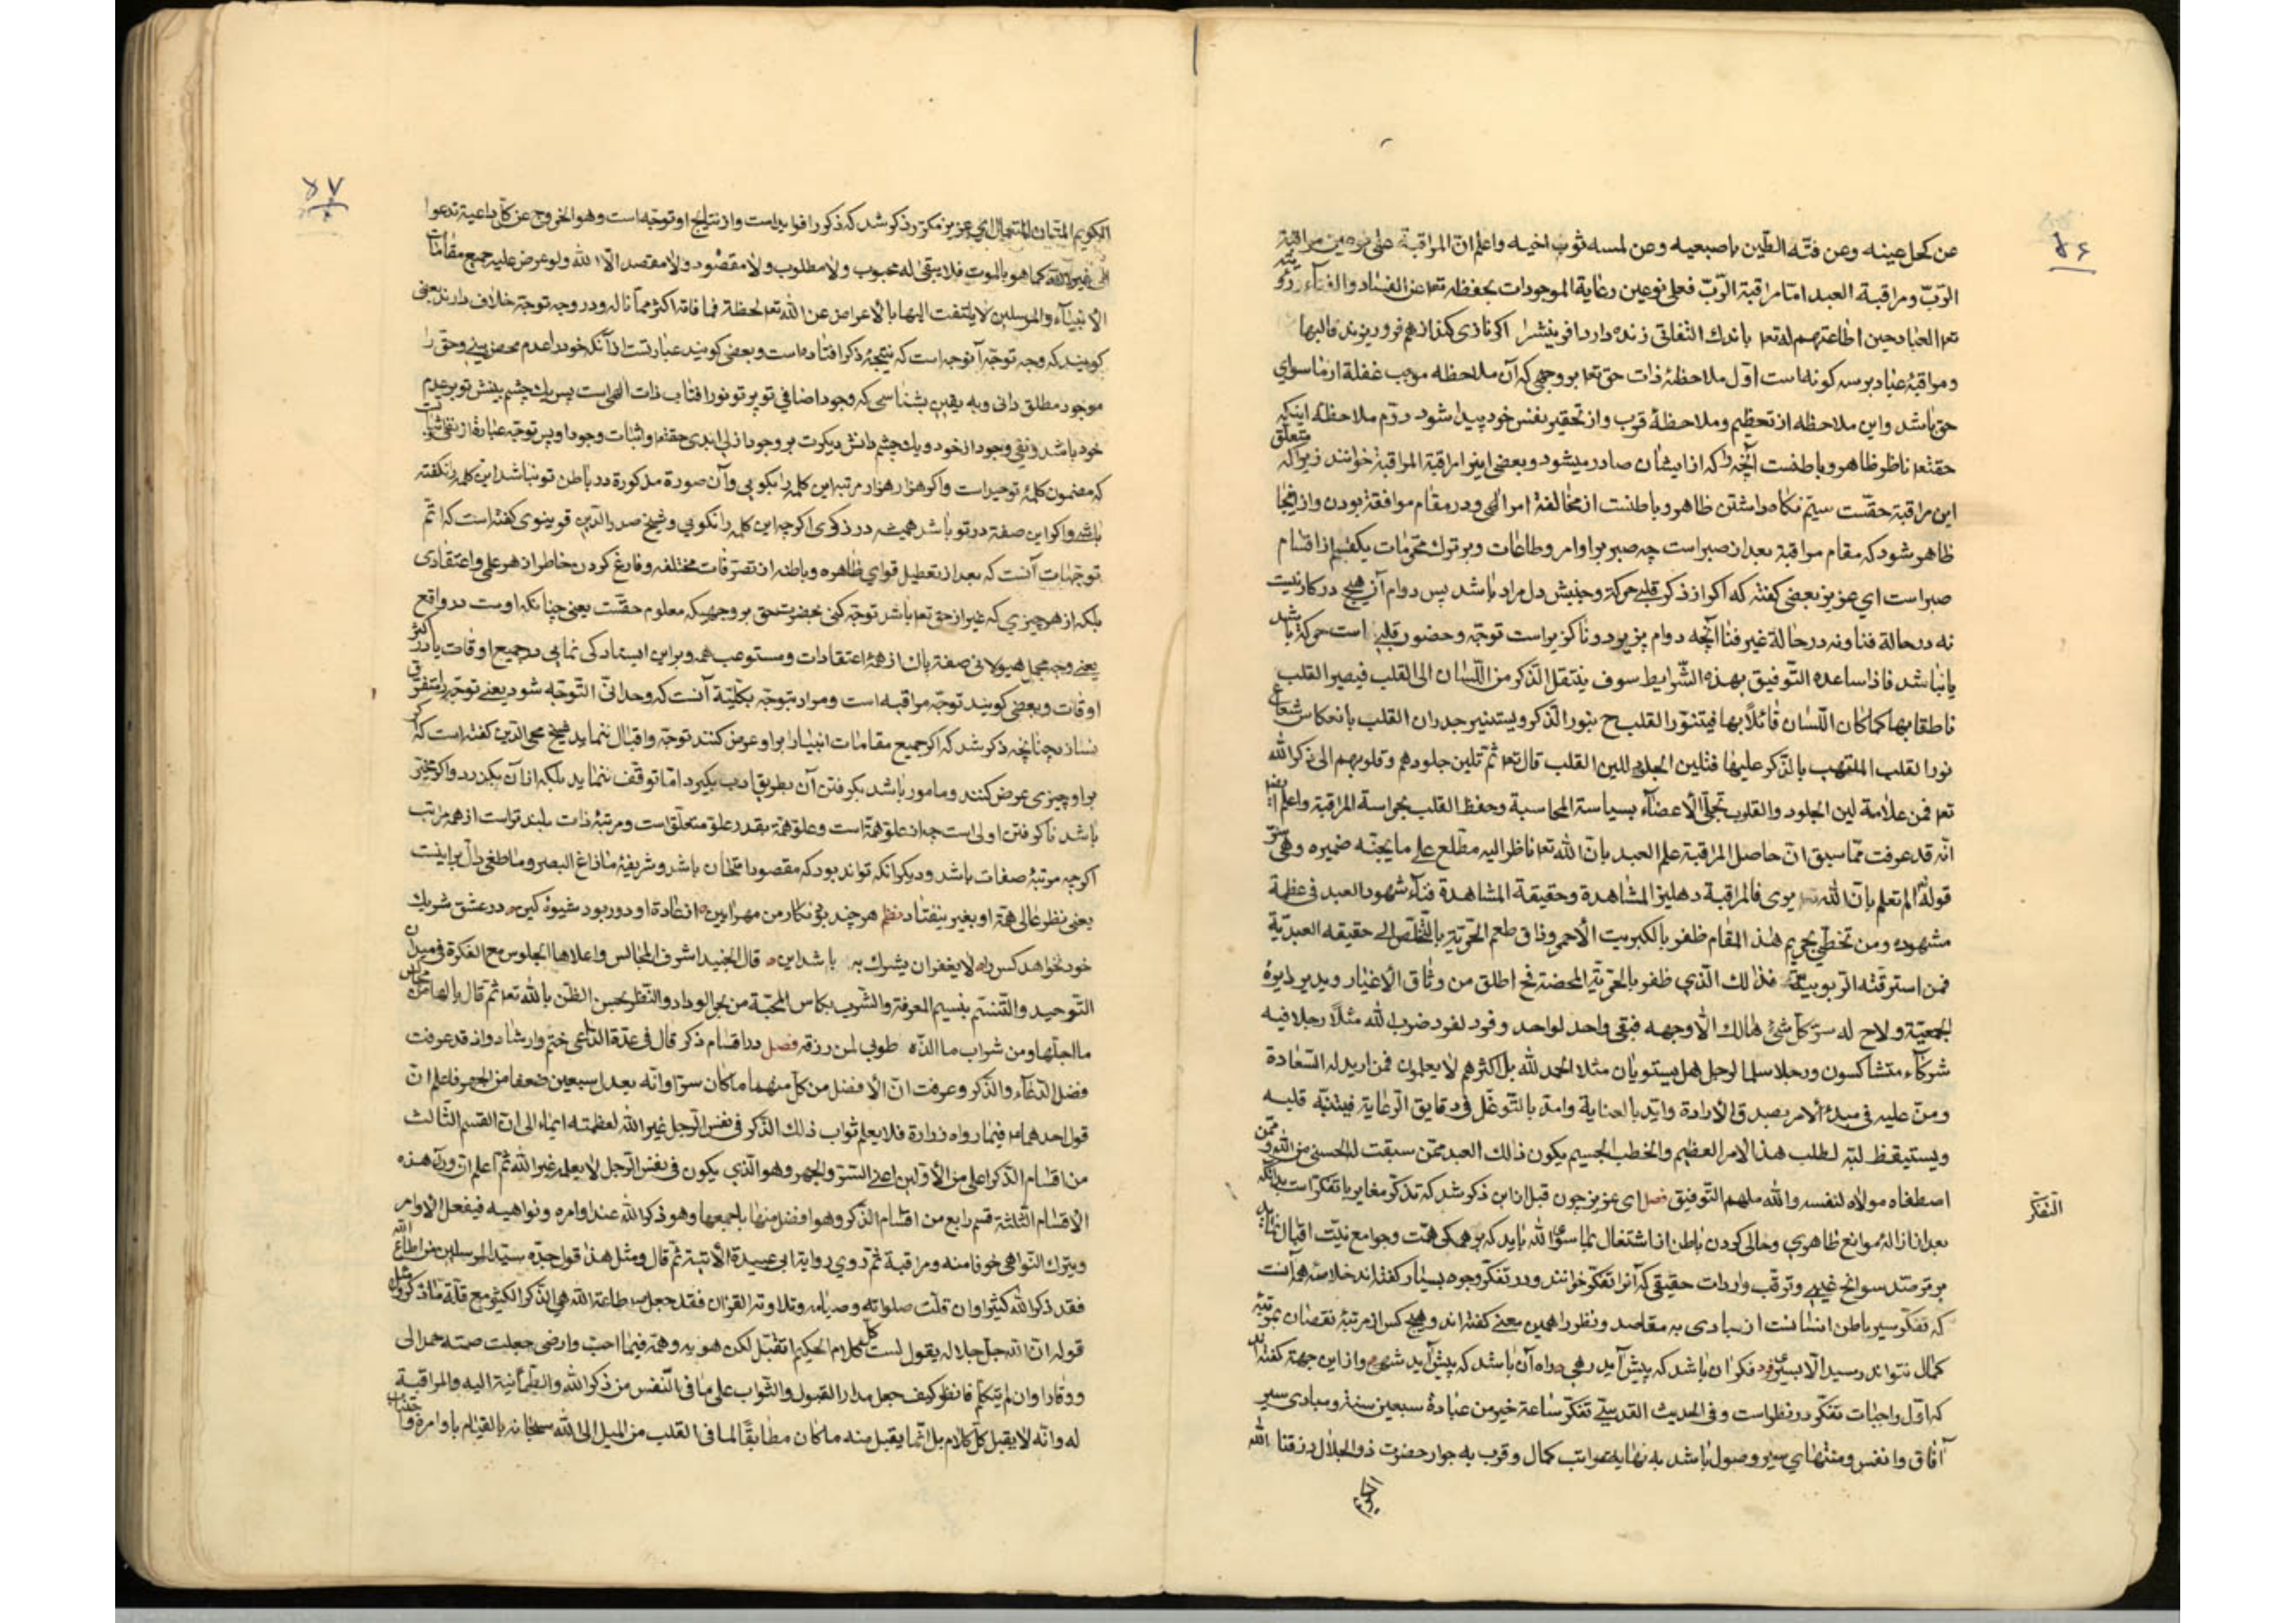 ۵۶
عن كحل عينه وعن فتّه الطّين باصبعيه وعن لمسه ثوب اخيه واعلم انّ المراقبة على نوعين مراقبة
الرّبّ ومراقبة العبد امّا مراقبة الرّبّ فعلى نوعين رعاية الموجودات بحفظه تعا عن الفساد والفناء
تعا العباد حين اطاعتهم له تعا باندك التفاتى زنده دارد آفرينش را اكر نازى كند از هم فرو ريزند قالبها
ومراقبهٔ عباد بر سه كونه است اوّل ملاحظهٔ ذات حق تعا بر وجهى كه آن ملاحظه موجب غفلة از ما سواى
حق باشد واين ملاحظه از تعظيم وملاحظهٔ قرب واز تحقير نفس خود پيدا شود دوّم ملاحظهٔ اينكه
حقتعا ناظر ظاهر وباطنست آنچه را كه از ايشان صادر ميشود وبعضى اينرا مراقبة المراقبة خوانند زيرا كه متعلّق
اين مراقبة حقّست سيّم نكاه داشتن ظاهر وباطنست از مخالفة امر الهى ودر مقام موافقة بودن واز اينجا
ظاهر شود كه مقام مراقبة بعد از صبر است چه صبر بر اوامر وطاعات وبر ترك محرّمات يكقسم از اقسام
صبر است اي عزيز بعضى كفته كه اكر از ذكر قلبى حركة وجنبش دل مراد باشد پس دوام آن هيچ در كار نيست
نه در حالة فنا ونه در حالة غير فنا آنچه دوام پزيرد وناكزير است توجّه وحضور قلبى است حركة باشد
يا نباشد فاذا ساعده التّوفيق بهذه الشّرايط سوف ينتقل الذّكر من اللّسان الى القلب فيصير القلب
ناطقا بها كما كان اللّسان قائلاً بها فيتنوّر القلب ح بنور الذّكر ويستنير جدران القلب بانعكاس شعاع
نور القلب الملتهب بالذّكر عليها فتلين الجلود للين القلب قال تعا ثمّ تلين جلودهم وقلوبهم الى ذكر الله
تعا فمن علامة لين الجلود والقلوب تجلّى الاعضاء بسياسة المحاسبة وحفظ القلب بحراسة المراقبة واعلم
انّه قد عرفت ممّا سبق انّ حاصل المراقبة علم العبد بانّ الله تعا ناظر اليه مطّلع على ما يجنّه ضميره وهى سرّ
قوله الم تعلم بانّ الله يرى فالمراقبة دهليز المشاهدة وحقيقة المشاهدة فناء شهود العبد فى عظمة
مشهوده ومن تخطّى بحريم هذا المقام ظفر بالكبريت الأحمر وذاق طعم الحرّيّة بالتّخلّص الى حقيقه العبديّة
فمن استرقّته الرّبوبيّة فذلك الّذي ظفر بالحرّيّة المحضة فح اطلق من وثاق الاغيار ويدير دايرة
الجمعيّة ولاح له سرّ كلّ شئ هالك الّا وجهه فبقى واحد لواحد وفرد لفرد ضرب الله مثلاً رجلا فيه
شركاء متشاكسون ورجلا سلما لرجل هل يستويان مثلا الحمد لله بل اكثرهم لا يعلمون فمن اريد له السّعادة
ومنّ عليه فى مبدء الامر بصدق الارادة وايّد بالعناية وامدّ بالتّوغّل فى دقايق الرّعاية فيتنبّه قلبه
ويستيقظ لبّه لطلب هذا الامر العظيم والخطب الجسيم يكون ذلك العبد ممّن سبقت له الحسنى من الله وممّن
اصطفاه مولاه لنفسه والله ملهم التّوفيق فصل اى عزيز چون قبل از اين ذكر شد كه تذكّر مغاير با تفكّر است بدانكه
التفكّر
بعد از ازالهٔ موانع ظاهرى وخالى كردن باطن از اشتغال بما سوى الله بايد كه بر همكى همّت وجوامع نيّت اقبال نمايد
بر ترصّد سوانح غيبى وترقّب واردات حقيقى كه آنرا تفكّر خوانند ودر تفكّر وجوه بسيار كفته اند خلاصهٔ همه آنست
كه تفكّر سير باطن انسانست از مبادى به مقاصد ونظر را همين معنى كفته اند وهيچ كس از مرتبهٔ نقصان بمرتبهٔ
كمال نتواند رسيد الّا بسير فرد فكر آن باشد كه پيش آيد رهى راه آن باشد كه پيش آيد شهى واز اين جهة كفته اند
كه اوّل واجبات تفكّر در نظر است وفى الحديث القدسى تفكّر ساعة خير من عبادة سبعين سنة ومبادى سير
آفاق وانفس ومنتهاي سير وصول باشد به نهاية مراتب كمال وقرب به جوار حضرت ذو الجلال رزقنا الله
الكريم
۵۷
الكريم المنّان المتعال اي عزيز مكرّر ذكر شد كه ذكر را فوايد است واز نتايج او توجّه است وهو الخروج عن كلّ داعية تدعوا
الى غير الله كما هو بالموت فلا يبقى له محبوب ولا مطلوب ولا مقصود ولا مقصد الّا الله ولو عرض عليه جميع مقامات
الانبياء والمرسلين لا يلتفت اليها بالاعراض عن الله تعا لحظة فما فاته اكثر ممّا ناله ودر وجه توجّة خلاف دارند بعضى
كويند كه وجه توجّه آنوجه است كه نتيجهٔ ذكر افتاده است وبعضى كويند عبارتست از آنكه خود را عدم محض بينى وحق را
موجود مطلق دانى وبه يقين بشناسى كه وجود اضافي تو پرتو نور آفتاب ذات الهى است پس يك چشم بينش تو بر عدم
خود باشد ونفى وجود از خود ويك چشم دانش ديكرت بر وجود ازلى ابدى حقتعا واثبات وجود او پس توجّه عبارة از نفى واثباتست
كه مضمون كلمهٔ توحيد است واكر هزار هزار مرتبه اين كلمه را بكويى وآن صورة مذكورة در باطن تو نباشد اين كلمه را نكفته
باشى واكر اين صفة در تو باشد هميشه در ذكرى اكرچه اين كلمه را نكويى وشيخ صدر الدّين قونيوى كفته است كه اتمّ
توجّهات آنست كه بعد از تعطيل قواي ظاهره وباطنه از تصرّفات مختلفه وفارغ كردن خاطر از هر علمى واعتقادى
بلكه از هر چيزي كه غير از حق تعا باشد توجّه كنى بحضرت حق بر وجهيكه معلوم حقّست يعنى چنانكه اوست در واقع
يعنى وجه مجمل هيولانى صفة پاك از همهٔ اعتقادات ومستوعب همه وبر اين ايستادكى نمايى در جميع اوقات يا در اكثر
اوقات وبعضى كويند توجّه مراقبه است ومراد بتوجّه بكلّيّة آنست كه وحدانىّ التّوجّه شود يعنى توجّه را متفرّق
نسازد چنانچه ذكر شد كه اكر جميع مقامات انبيا را بر او عرض كنند توجّه واقبال ننمايد شيخ محى الدّين كفته است كه اكر
بر او چيزى عرض كنند ومامور باشد بكرفتن آن بطريق ادب بكيرد امّا توقّف ننمايد بلكه از آن بكزرد واكر مخيّر
باشد ناكرفتن اولى است چه از علوّ همّة است وعلوّ همّة بقدر علوّ متعلّق است ومرتبهٔ ذات بلندتر است از همه مراتب
اكرچه مرتبهٔ صفات باشد وديكر آنكه تواند بود كه مقصود امتحان باشد وشريفهٔ ما زاغ البصر وما طغى دالّ بر اينست
يعنى نظر عالى همّة او بغير نيفتاد نظم هر چند بود نكار من مهر آيين از عادة او دور بود شيوهٔ كين در عشق شريك
خود نخواهد كس را لا يغفر ان يشرك به باشد اين قال الجنيد اشرف المجالس واعلاها الجلوس مع الفكرة فى ميدان
التّوحيد والتّنسّم بنسيم المعرفة والشّرب بكاس المحبّة من بحر الوداد والنّظر بحسن الظّن بالله تعا ثمّ قال يا لها من مجالس
ما اجلّها ومن شراب ما الذّه طوبى لمن رزقه فصل در اقسام ذكر قال فى عدّة الدّاعى ختم وارشاد واذ قد عرفت
فضل الدّعاء والذّكر وعرفت انّ الافضل من كلّ منهما ما كان سرّا وانّه يعدل سبعين ضعفا من الجهر فاعلم انّ
قول احدهما ع فيما رواه زرارة فلا يعلم ثواب ذلك الذّكر فى نفس الرّجل غير الله لعظمته ايماء الى انّ القسم الثّالث
من اقسام الذّكر اعلى من الأوّلين اعنى السّرّ والجهر وهو الّذي يكون فى نفس الرّجل لا يعلمه غير الله ثمّ اعلم انّ وراء هذه
الاقسام الثّلثة قسم رابع من اقسام الذّكر وهو افضل منها باجمعها وهو ذكر الله عند اوامره ونواهيه فيفعل الاوامر
ويترك النّواهى خوفا منه ومراقبة ثمّ روي رواية ابى عبيدة الآتية ثمّ قال ومثل هذا قول جدّه سيّد المرسلين من اطاع الله
فقد ذكر الله كثيرا وان قلّت صلواته وصيامه وتلاوته القران فقد جعل طاعة الله هى الذّكر الكثير مع قلّة ما ذكر ومثل
قوله انّ الله جلّ جلاله يقول لست كلّ كلام الحكيم اتقبّل لكن هويه وهمّه فيما احبّ وارضى جعلت صمته حمدا لى
ووقارا وان لم يتكلّم فانظر كيف جعل مدار القبول والثّواب على ما فى النّفس من ذكر الله والطّمأنينة اليه والمراقبة
له وانّه لا يقبل كلّ كلام بل انّما يقبل منه ما كان مطابقًا لما فى القلب من الميل الى الله سبحانه بالقيام باوامره و